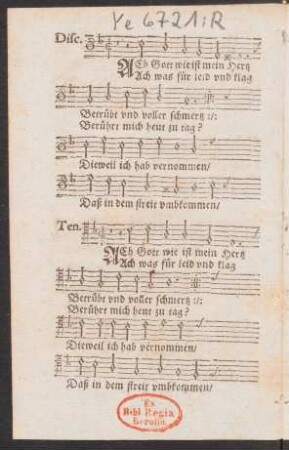 Ye 6721:R
Disc.
ACh Gott wie ist mein Hertz
Ach was für leid vnd klag
Betrübt vnd voller schmertz :/:
Berührt mich heut zu tag?
Dieweil ich hab vernommen/
Daß in dem streit vmbkommen/
Ten.
ACh Gott wie ist mein Hertz
Ach was für leid vnd klag
Betrübt vnd voller schmertz :/:
Berührer mich heut zu tag?
Dieweil ich hab vernommen/
Daß in dem streit vmbkommen/
Ex
Bibl. Regia
Berolin.